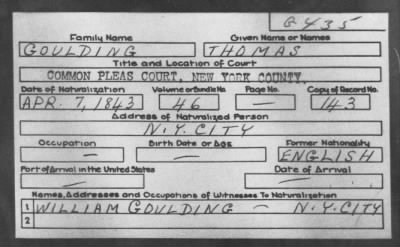 G 435
Family Name Given Name or Names
GOULDING THOMAS
Title and Location of Court
COMMON PLEAS COURT, NEW YORK COUNTY.
Date of Naturalization Volume or Bundle No. Page No. Copy of Record No.
APR. 7, 1843 46 — 143
Address of Naturalized Person
N.Y. CITY
Occupation Birth Date or Age Former Nationality
— — ENGLISH
Port of Arrival in the United States Date of Arrival
— —
Names, Addresses and Occupations of Witnesses To Naturalization
1 WILLIAM GOULDING — N.Y. CITY
2